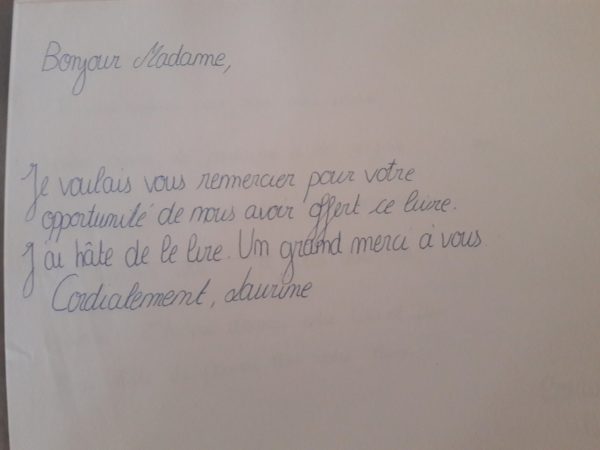 Bonjour Madame,
Je voulais vous remercier pour votre
opportunité de nous avoir offert ce livre.
J'ai hâte de le lire. Un grand merci à vous
Cordialement, Laurine